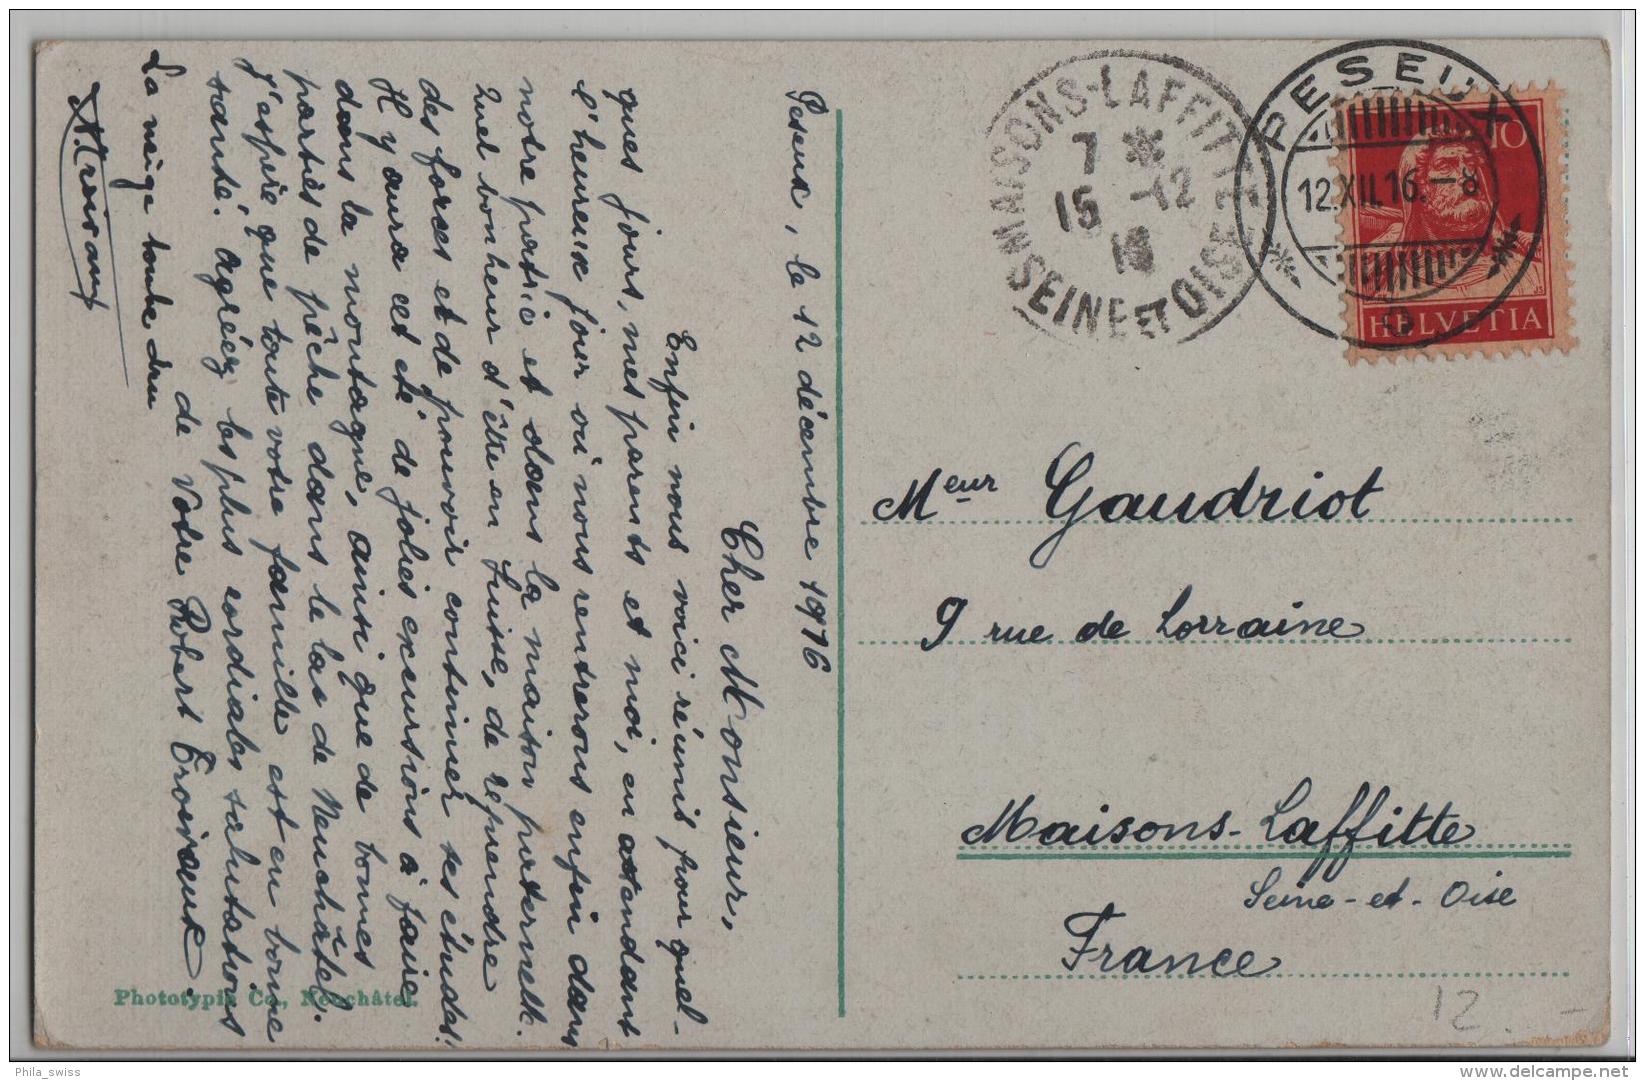 Peseux, le 12 décembre 1916
Cher Monsieur,
Enfin nous voici réunis pour quel-
ques jours, mes parents et moi, en attendant
l'heureux jour où nous rentrerons enfin dans
notre patrie et dans la maison paternelle.
Quel bonheur d'être en Suisse, de reprendre
des forces et de pouvoir continuer ses études!
Il y aura cet été de jolies excursions à faire
dans la montagne, ainsi que de bonnes
parties de pêche dans le lac de Neuchâtel.
J'espère que toute votre famille est en bonne
santé. Agréez les plus cordiales salutations
de Votre Robert
La neige tombe dru
Phototypie Co., Neuchâtel.
MAISONS-LAFFITTE
7 *
15 -12
16
SEINE ET OISE
PESEUX
12.XII.16.-8
10
HELVETIA
Meur Gaudriot
9 rue de Lorraine
Maisons-Laffitte
Seine-et-Oise
France
12.-
Phila_swiss
www.delcampe.net